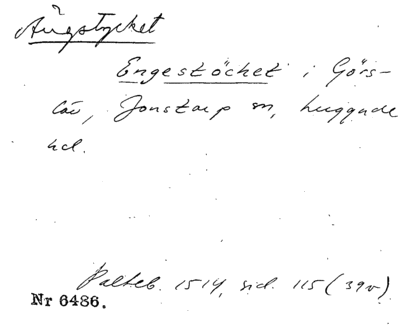 Ängstycket
Engestöchet i Görs-
löv, Jonstorp sn, Luggude
hd.
Palteb. 1514, sid. 115 (39v)
Nr 6486.